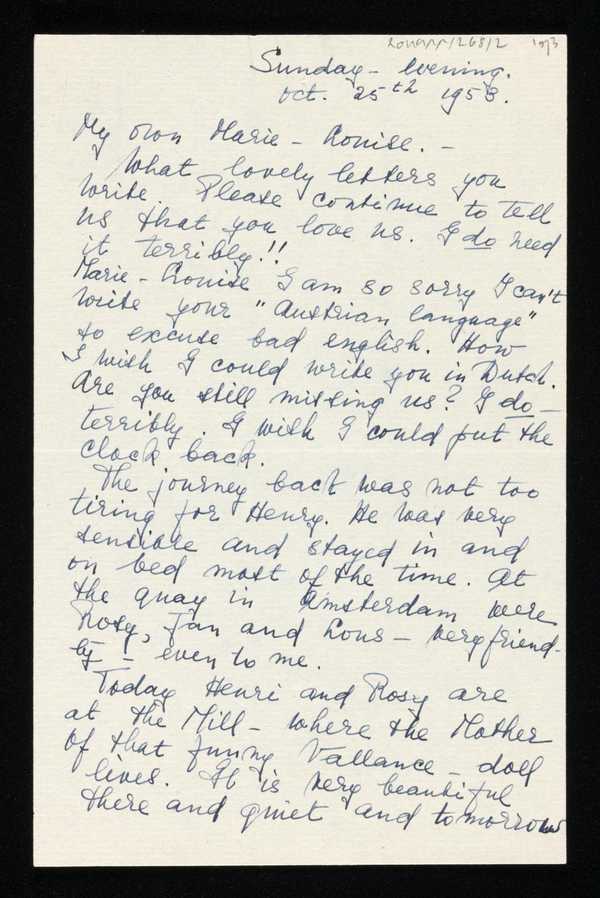 1 of 3
Sunday - evening.
Oct. 25th 1953.
My own Marie - Louise. -
What lovely letters you
write. Please continue to tell
us that you love us. I do need
it terribly!!
Marie - Louise I am so sorry I can't
write your "Austrian language"
so excuse bad english. How
I wish I could write you in Dutch.
Are you still missing us? I do -
terribly. I wish I could put the
clock back.
The journey back was not too
tiring for Henry. He was very
sensible and stayed in and
on bed most of the time. At
the quay in Amsterdam were
Rosy, Jan and Lous - very friend-
ly - even to me.
Today Henri and Rosy are
at the Mill - where the Mother
of that funny Vallance - doll
lives. It is very beautiful
there and quiet and tomorrow